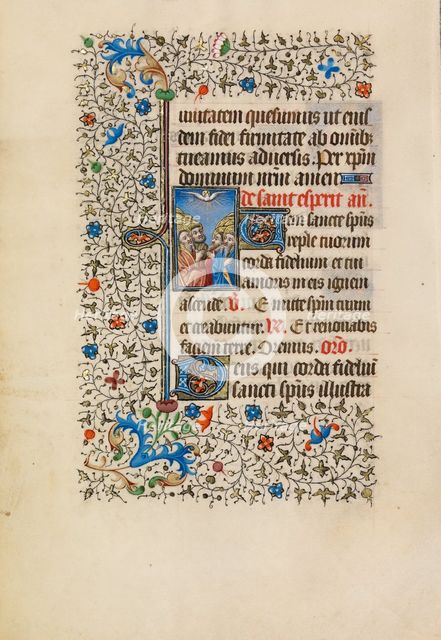 unitatem quesumus ut eius
dem fidei firmitate ab omnib
tueamur aduersis. Per xpm
dominum nrm amen
de saint esperit añ.
Ueni sancte sps
reple tuorum
corda fidelium et tui
amoris in eis ignem
ascende. V. Emitte spm tuum
et creabuntur. Re. Et renouabis
faciem terre. Oremus. oro.
Deus qui corda fideliũ
sancti sps illustra